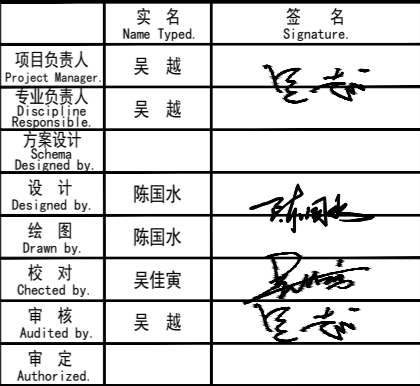 实 名
Name Typed.
签 名
Signature.
项目负责人
Project Manager.
吴 越
专业负责人
Discipline
Responsible.
吴 越
方案设计
Schema
Designed by.
设 计
Designed by.
陈国水
陈国水
绘 图
Drawn by.
陈国水
校 对
Chected by.
吴佳寅
审 核
Audited by.
吴 越
审 定
Authorized.